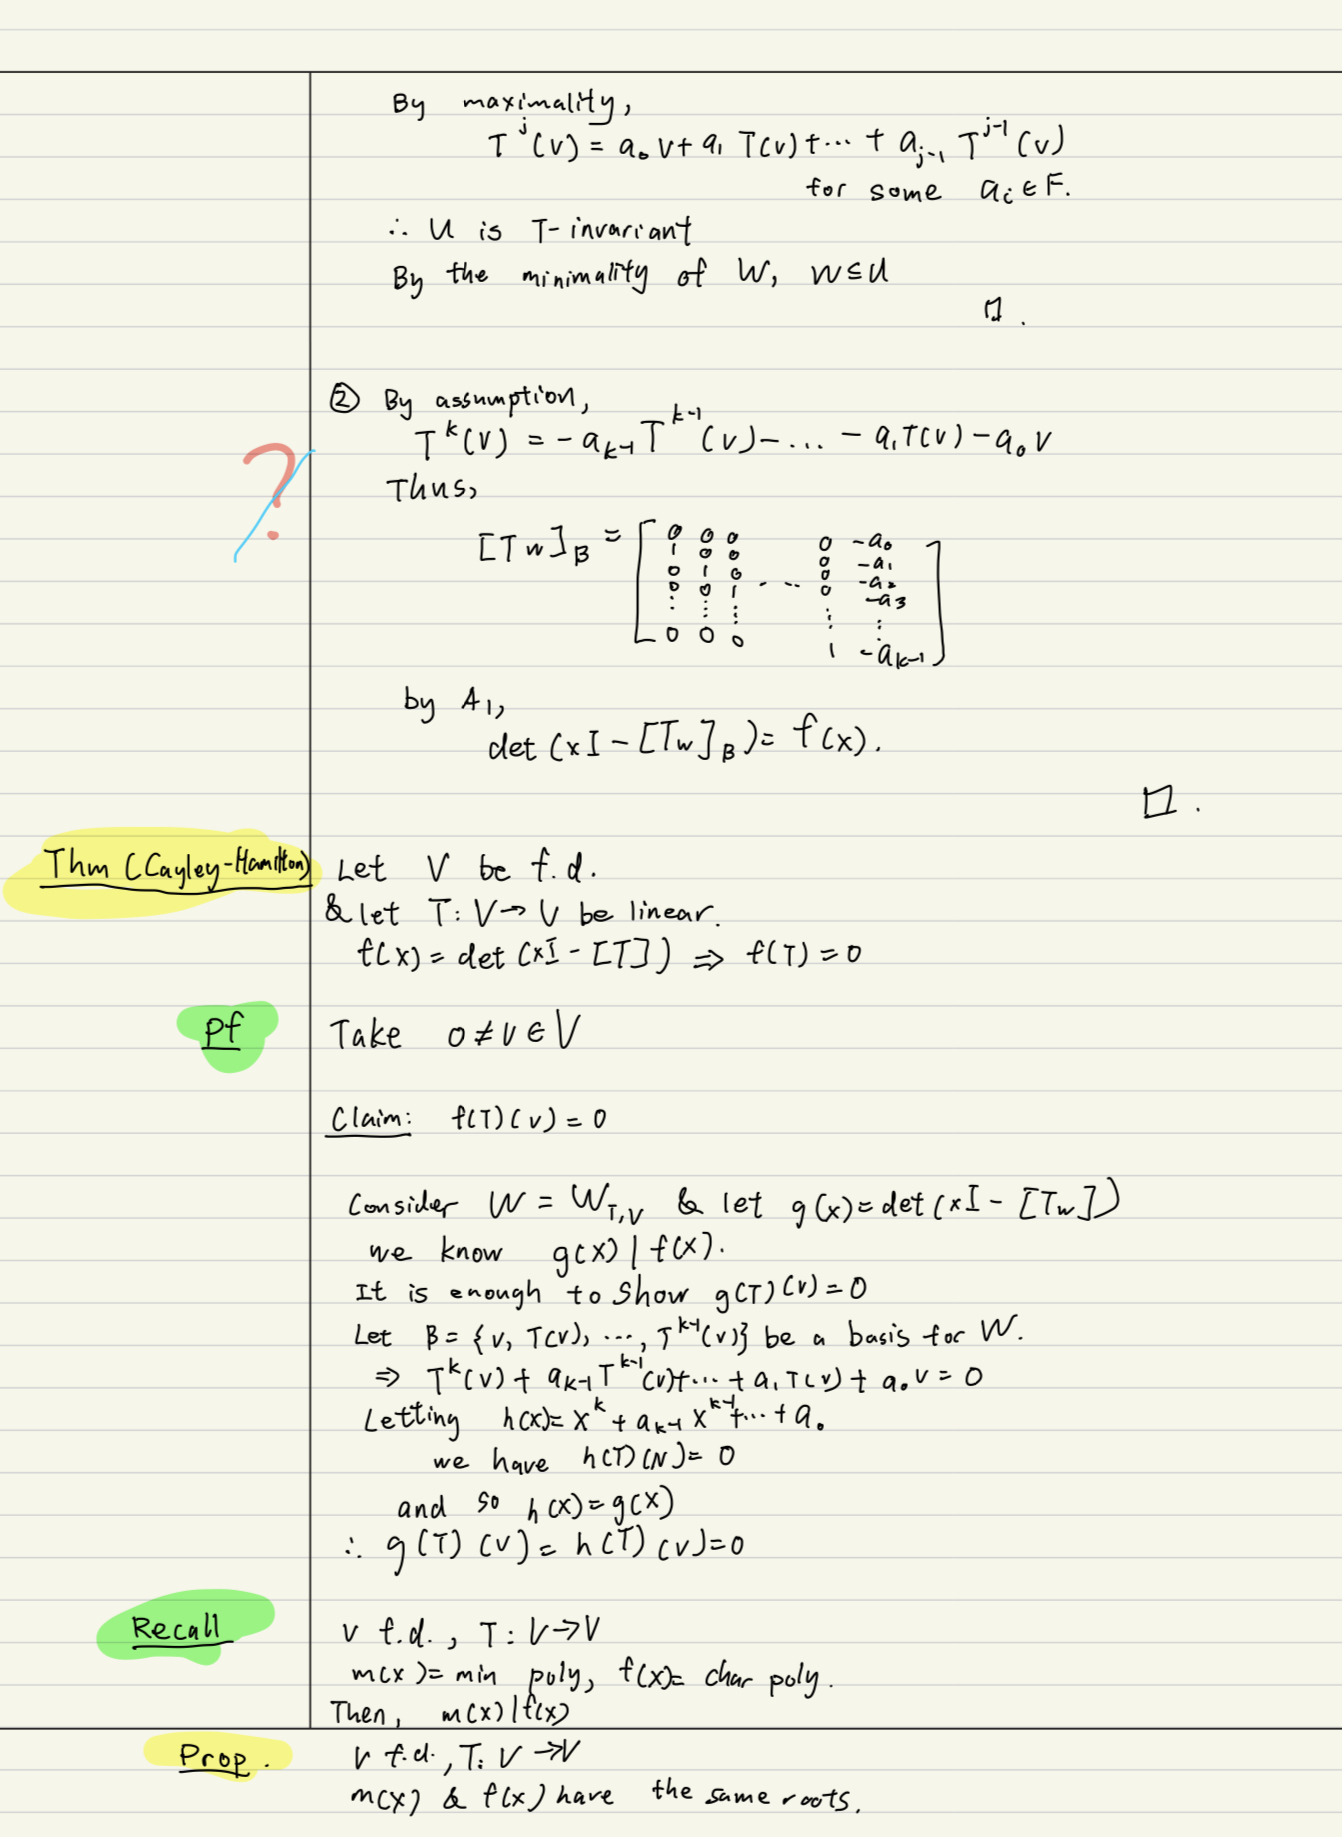 By maximality,
T^j(v) = a₀v + a₁T(v) + ··· + a_{j-1}T^{j-1}(v)
for some aᵢ ∈ F.
∴ U is T-invariant
By the minimality of W, W ⊆ U
□.
② By assumption,
T^k(v) = -a_{k-1}T^{k-1}(v) - ... - a₁T(v) - a₀v
?
Thus,
[T_W]_β = [ 0 0 0 0 -a₀
1 0 0 0 -a₁
0 1 0 ... 0 -a₂
0 0 1 0 -a₃
⋮ ⋮ ⋮ ⋮ ⋮
0 0 0 1 -a_{k-1} ]
by A1,
det(xI - [T_W]_β) = f(x).
□.
Thm (Cayley-Hamilton) Let V be f.d.
& let T: V→V be linear.
f(x) = det(xI - [T]) ⇒ f(T) = 0
pf Take 0 ≠ v ∈ V
Claim: f(T)(v) = 0
Consider W = W_{T,v} & let g(x) = det(xI - [T_W])
we know g(x) | f(x).
It is enough to show g(T)(v) = 0
Let β = {v, T(v), ..., T^{k-1}(v)} be a basis for W.
⇒ T^k(v) + a_{k-1}T^{k-1}(v) + ··· + a₁T(v) + a₀v = 0
Letting h(x) = x^k + a_{k-1}x^{k-1} + ··· + a₀
we have h(T)(v) = 0
and so h(x) = g(x)
∴ g(T)(v) = h(T)(v) = 0
Recall V f.d., T: V→V
m(x) = min poly, f(x) = char poly.
Then, m(x) | f(x)
Prop. V f.d., T: V→V
m(x) & f(x) have the same roots.